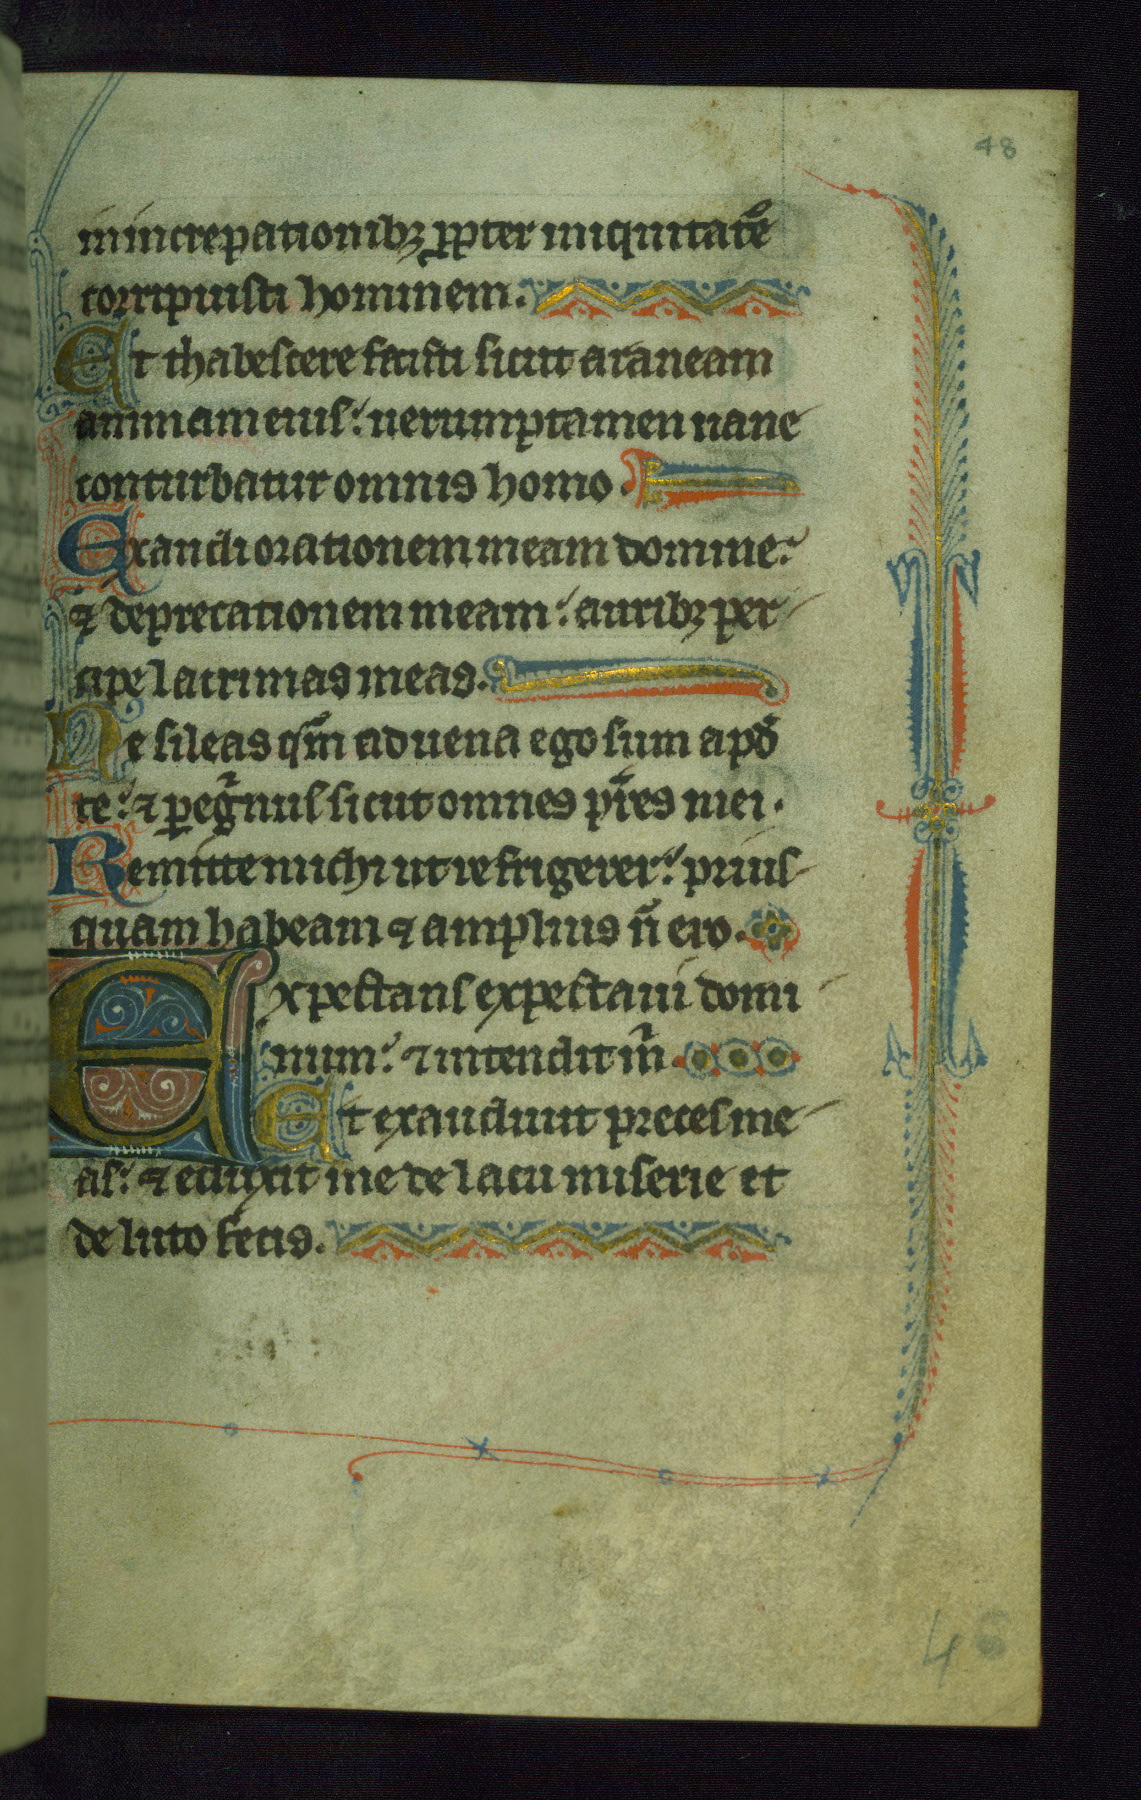 48
in increpationibꝫ ꝓpter iniquitatē
corripuisti hominem.
Et thabescere fecisti sicut araneam
animam eius: uerumptamen uane
conturbatur omnis homo.
Exaudi orationem meam domine:
⁊ deprecationem meam: auribꝫ per
cipe lacrimas meas.
Ne sileas qm̄ aduena ego sum apđ
te: ⁊ ꝑegͥnus sicut omnes pr̄es mei.
Remitte michi ut refrigerer: prius
quam habeam ⁊ amplius n̄ ero.
Expectans expectaui domi
num: ⁊ intendit m̄.
Et exaudiuit preces me
as: ⁊ eduxit me de lacu miserie et
de luto fecis.
46